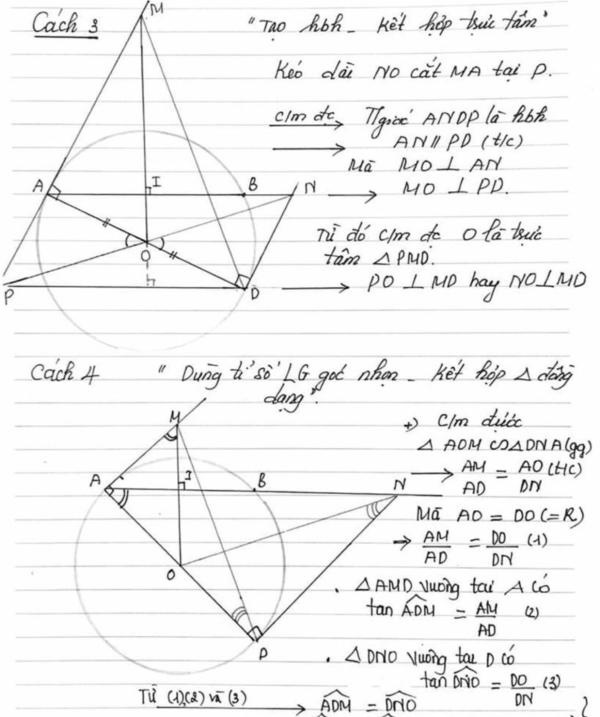 Cách 3
"Tạo hbh - Kết hợp trực tâm"
Kéo dài NO cắt MA tại P.
c/m đc → Tgiác ANDP là hbh
→ AN // PD (t/c)
Mà MO ⊥ AN
→ MO ⊥ PD.
Từ đó c/m đc O là trực
tâm △PMD.
→ PO ⊥ MD hay NO⊥MD
M
A
I
B
N
O
P
D
Cách 4
" Dùng tỉ số LG góc nhọn - Kết hợp △ đồng
dạng".
+) C/m được
△ AOM ∽ △DNA (gg)
→ AM/AD = AO/DN (t/c)
Mà AO = DO (=R)
→ AM/AD = DO/DN (1)
. △AMD vuông tại A có
tan ADM = AM/AD (2)
. △DNO vuông tại D có
tan DNO = DO/DN (3)
Từ (1),(2) và (3) → ADM = DNO
M
A
I
B
N
O
D